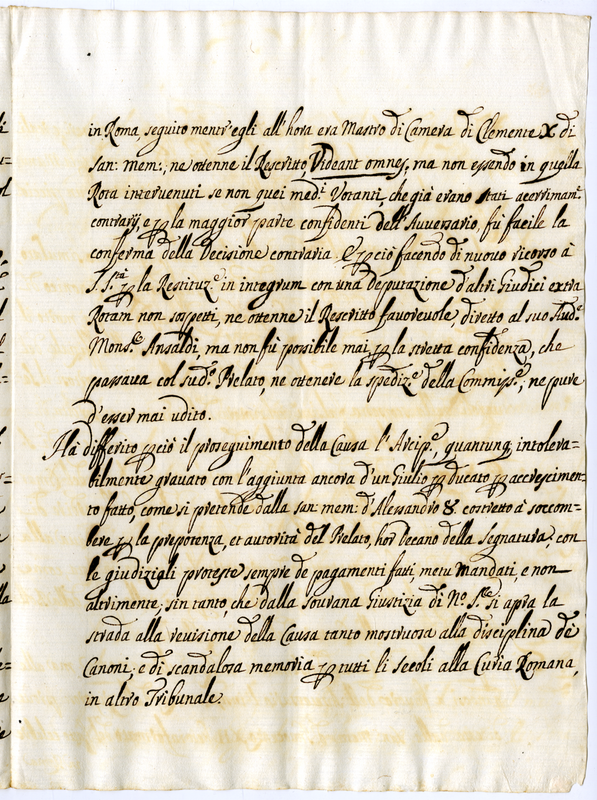 in Roma, seguito mentr'egli all'hora era Mastro di Camera di Clemente X di
san: mem:, ne ottenne il Rescritto, Videant omnes, ma non essendo in quella
Rota intervenuti se non quei med.i Votanti, che già erano stati acerriman.te
contrarij, e p la maggior parte confidenti dell'Avversario, fù facile la
conferma della Decisione contraria. E p ciò facendo di nuovo ricorso à
S. S.tà p la Restituz.e in integrum con una deputazione d'altri Giudici extra
Rotam non sospetti, ne ottenne il Rescritto favorevole, diretto al suo Aud.e
Mons.e Ansaldi, ma non fù possibile mai p la stretta confidenza, che
passava col sud.o Prelato, ne ottenere la spediz.e della Commiss.e, ne pure
d'esser mai udito.
Hà differito p ciò il proseguimento della Causa l'Arcip.e, quantunq, intolera=
bilmente gravato con l'aggiunta ancora d'un Giulio p ducato p accrescimen=
to fatto, come si pretende dalla san: mem: d'Alessandro 8. costretto à soccom=
bere p la prepotenza, et autorità del Prelato, hor Decano della Segnatura, con
le giudiziali proteste sempre de pagamenti fatti, metu Mandati, e non
altrimente, sin tanto, che dalla Sovrana Giustizia di N.o S.re si apra la
strada alla revisione della Causa tanto mostruosa alla disciplina de
Canoni, e di scandalosa memoria p tutti li secoli alla Curia Romana,
in altro Tribunale.